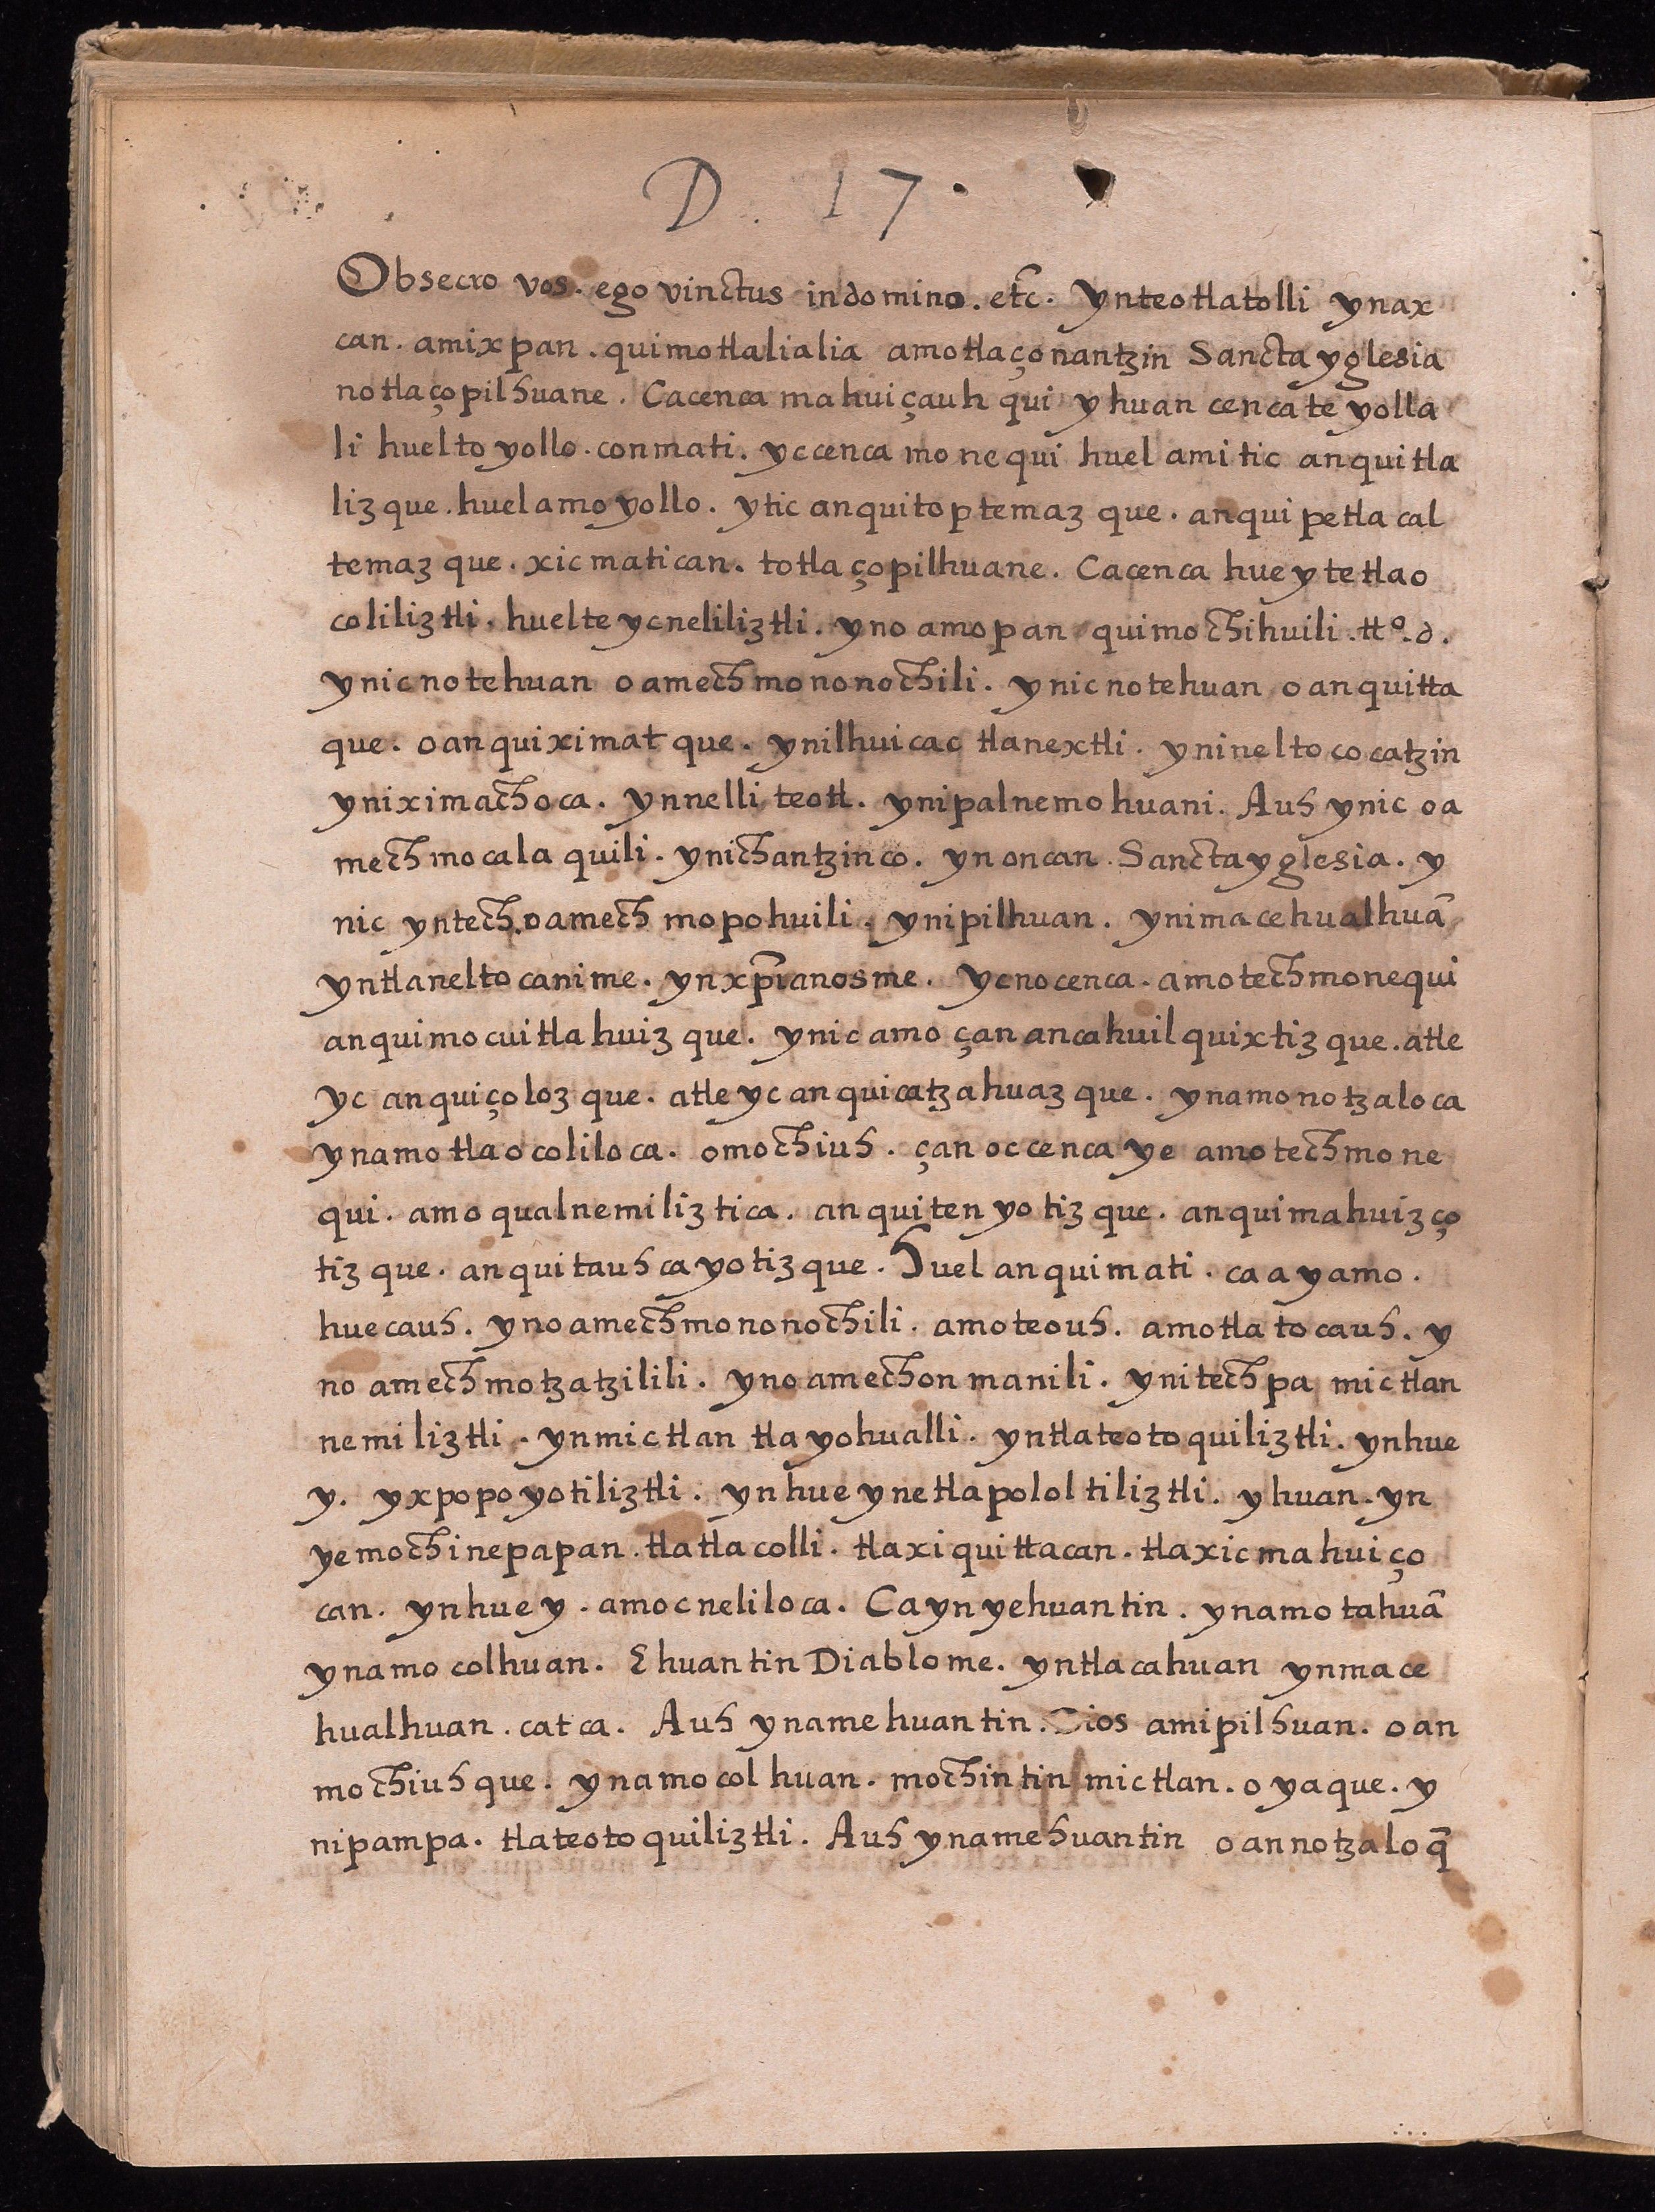 D. 17.
Obsecro vos. ego vinctus indomino. etc̃. ynteotlatolli ynax
can. amixpan. quimotlalialia amotlaçonantzin Sancta yglesia
notlaçopilhuane. Cacenca mahuiçauh qui yhuan cencate yolla
li huelto yollo. conmati. yccenca monequi huel amitic anquitla
lizque. huelamo yollo. ytic anquitoptemazque. anquipetlacal
temazque. xicmatican. totlaçopilhuane. Cacenca hueytetlao
coliliztli. huelteycneliliztli. yno amopan quimochihuili. ttº. d.
ynicnotehuan oamechmononochili. ynicnotehuan oanquitta
que. oanquiximatque. ynilhuicac tlanextli. yninelto cocatzin
yniximachoca. ynnelli teotl. ynipalnemohuani. Auh ynic oa
mechmocalaquili. ynichantzinco. ynoncan. Sancta yglesia. y
nic yntech.oamech mopohuili. ynipilhuan. ynimacehualhuã
yntlaneltocanime. ynxp̃ianosme. ycnocenca. amotechmonequi
anquimocuitlahuizque. ynicamo çan ancahuilquixtizque. atle
yc anquiçolozque. atleyc anquicatzahuazque. ynamonotzaloca
ynamotlaocoliloca. omochiuh. çan occenca ye amotechmone
qui. amo qualnemiliztica. anquitenyotizque. anquimahuizço
tizque. anquitauhcayotizque. Huel anquimati. ca ayamo.
huecauh. ynoamechmononochili. amoteouh. amotlatocauh. y
no amechmotzatzilili. ynoamechonmanili. ynitechpa mictlan
nemiliztli. ynmictlan tlayohualli. yntlateotoquiliztli. ynhue
y. yxpopoyotiliztli. ynhueynetlapololtiliztli. yhuan. yn
yemochinepapan. tlatlacolli. tlaxiquittacan. tlaxicmahuiço
can. ynhuey. amocneliloca. Caynyehuantin. ynamotahuã
ynamocolhuan. Ehuantin Diablome. yntlacahuan ynmace
hualhuan. catca. Auh ynamehuantin. Dios amipilhuan. oan
mochiuhque. ynamocolhuan. mochintin mictlan. oyaque. y
nipampa. tlateotoquiliztli. Auh ynamehuantin oannotzaloq̃